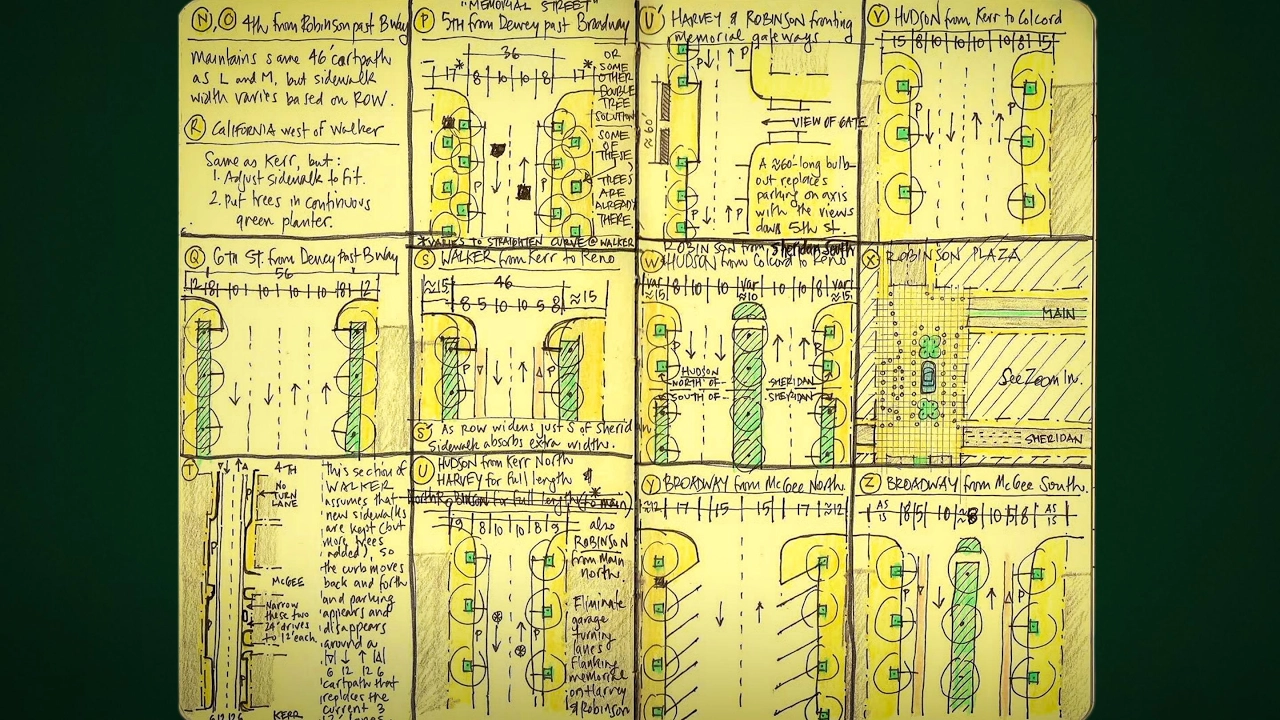 N,O 4th from Robinson past Bway
maintains same 46' cartpath
as L and M, but sidewalk
width varies based on ROW.
R CALIFORNIA west of Walker
Same as Kerr, but:
1. Adjust sidewalk to fit.
2. Put trees in continuous
green planter.
"MEMORIAL STREET"
P 5TH from Dewey past Broadway
36
17* 8 10 10 8 17*
OR
SOME
OTHER
DOUBLE
TREE
SOLUTION
SOME
OF
THESE
TREES
ARE
ALREADY
THERE
P P
*VARIES TO STRAIGHTEN CURVE @ WALKER
U' HARVEY & ROBINSON fronting
memorial gateways
P P
≈ 60'
VIEW OF GATE
A ≈60'-long bulb-
out replaces
parking on axis
with the views
down 5th St.
P P
V HUDSON from Kerr to Colcord
15 8 10 10 10 10 8 15
P P
Q 6TH St. from Dewey past Bway
56
12 8 10 10 10 10 8 12
S WALKER from Kerr to Reno
≈15 46 ≈15
8 5 10 10 5 8
P P
S' As ROW widens just S of Sheridan
Sidewalk absorbs extra width.
ROBINSON from Sheridan South
W HUDSON from Colcord to Reno
var ≈15 8 10 10 var ≈10 10 10 8 var ≈15
P P
HUDSON
NORTH OF SHERIDAN
SOUTH OF SHERIDAN
X ROBINSON PLAZA
MAIN
See Zoom In.
SHERIDAN
T
4TH
NO
TURN
LANE
P
McGEE
Narrow
these two
24' drives
to 12' each.
KERR
this section of
WALKER
assumes that
new sidewalks
are kept (but
more trees
added), so
the curb moves
back and forth
and parking
appears and
disappears
around a
6 12 12 6
cartpath that
replaces the
current 3
U HUDSON from Kerr North &
HARVEY for full length
North Robinson for full length (to main)
*
19 8 10 10 8 19
P P
also
ROBINSON
from Main
north.
Eliminate
garage
turning
lanes
flanking
memorial
on Harvey
& Robinson
Y BROADWAY from McGee North.
≈12 17 15 15 17 ≈12
Z BROADWAY from McGee South.
AS IS 8 5 10 ≈8 10 5 8 AS IS
P P